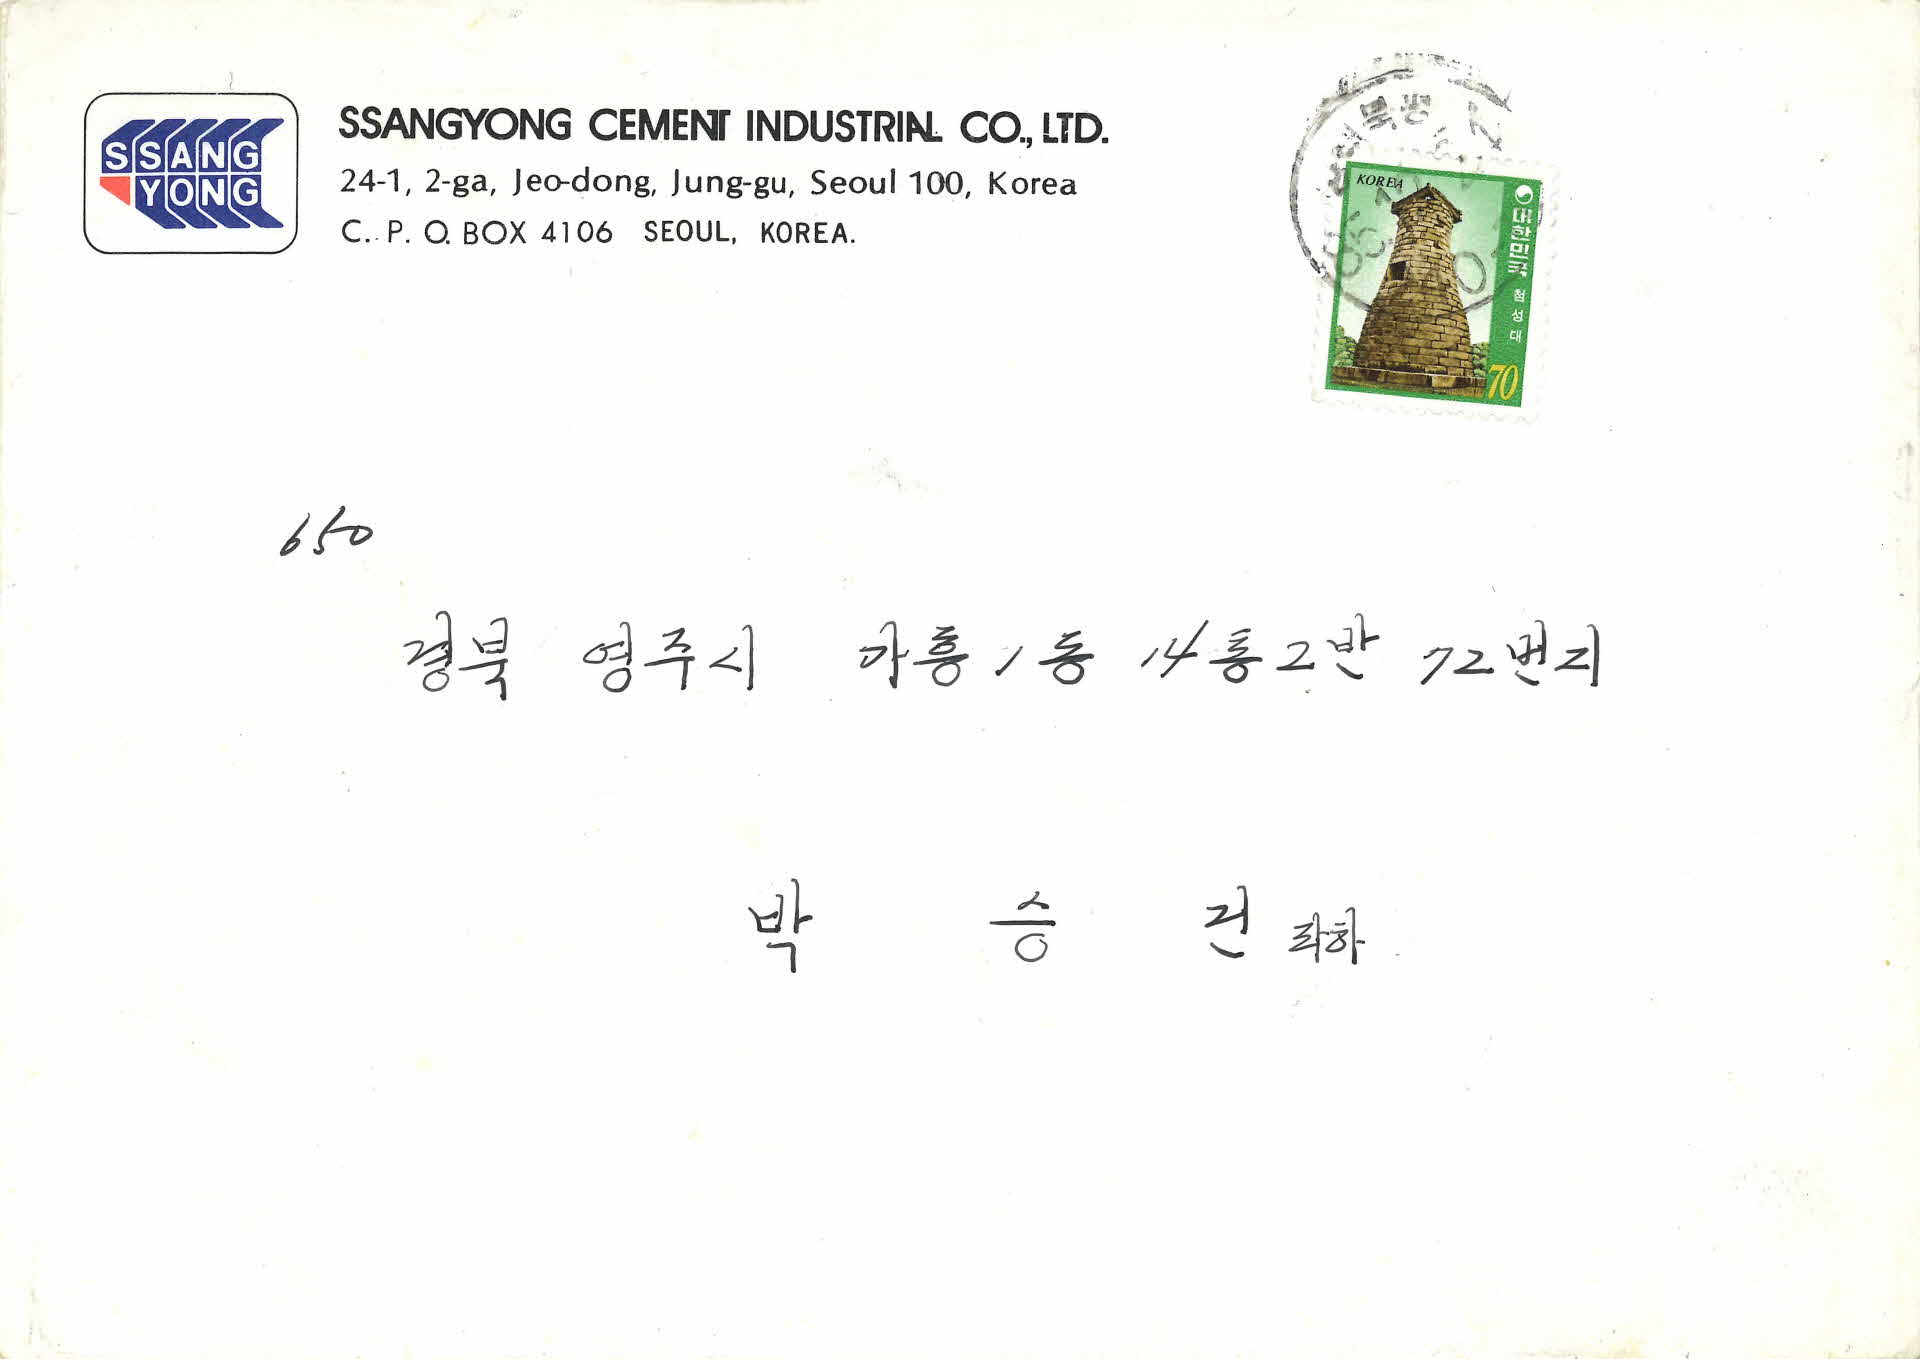 SSANG
YONG
SSANGYONG CEMENT INDUSTRIAL CO., LTD.
24-1, 2-ga, Jeo-dong, Jung-gu, Seoul 100, Korea
C. P. O. BOX 4106 SEOUL, KOREA.
KOREA
대한민국 첨성대
70
650
경북 영주시 가흥1동 14통2반 72번지
박 승 건 좌하